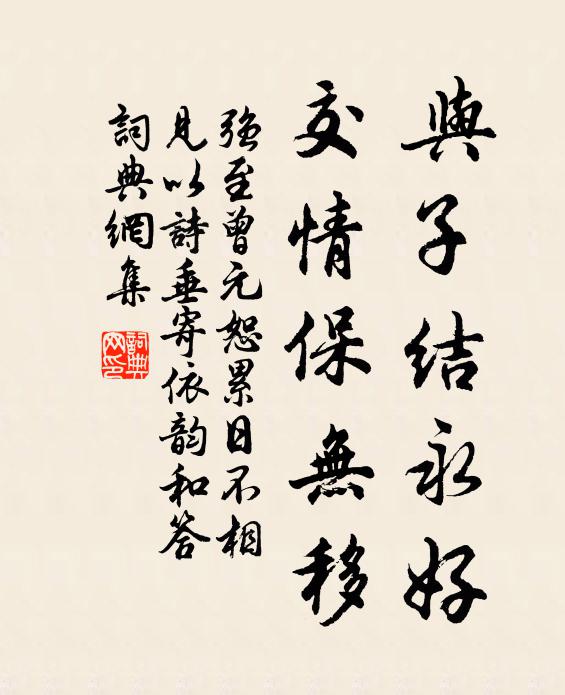 與子结永好
交情保無移
强至曾元恕累日不相
見以詩垂寄依韵和答
詞典網集
詞典
网印